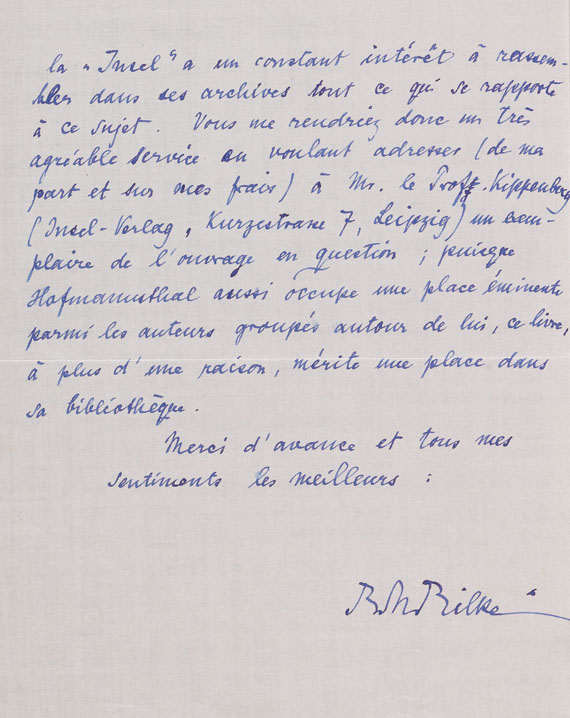 la „Insel“ a un constant intérêt à rassem-
bler dans ses archives tout ce qui se rapporte
à ce sujet. Vous me rendriez donc un très
agréable service en voulant adresser (de ma
part et sur mes frais) à Mr. le Proff. Kippenberg
(Insel-Verlag, Kurzestrasse 7, Leipzig) un exem-
plaire de l'ouvrage en question ; puisque
Hofmannsthal aussi occupe une place éminente
parmi les auteurs groupés autour de lui, ce livre,
à plus d'une raison, mérite une place dans
sa bibliothèque.
Merci d'avance et tous mes
sentiments les meilleurs :
RMRilke